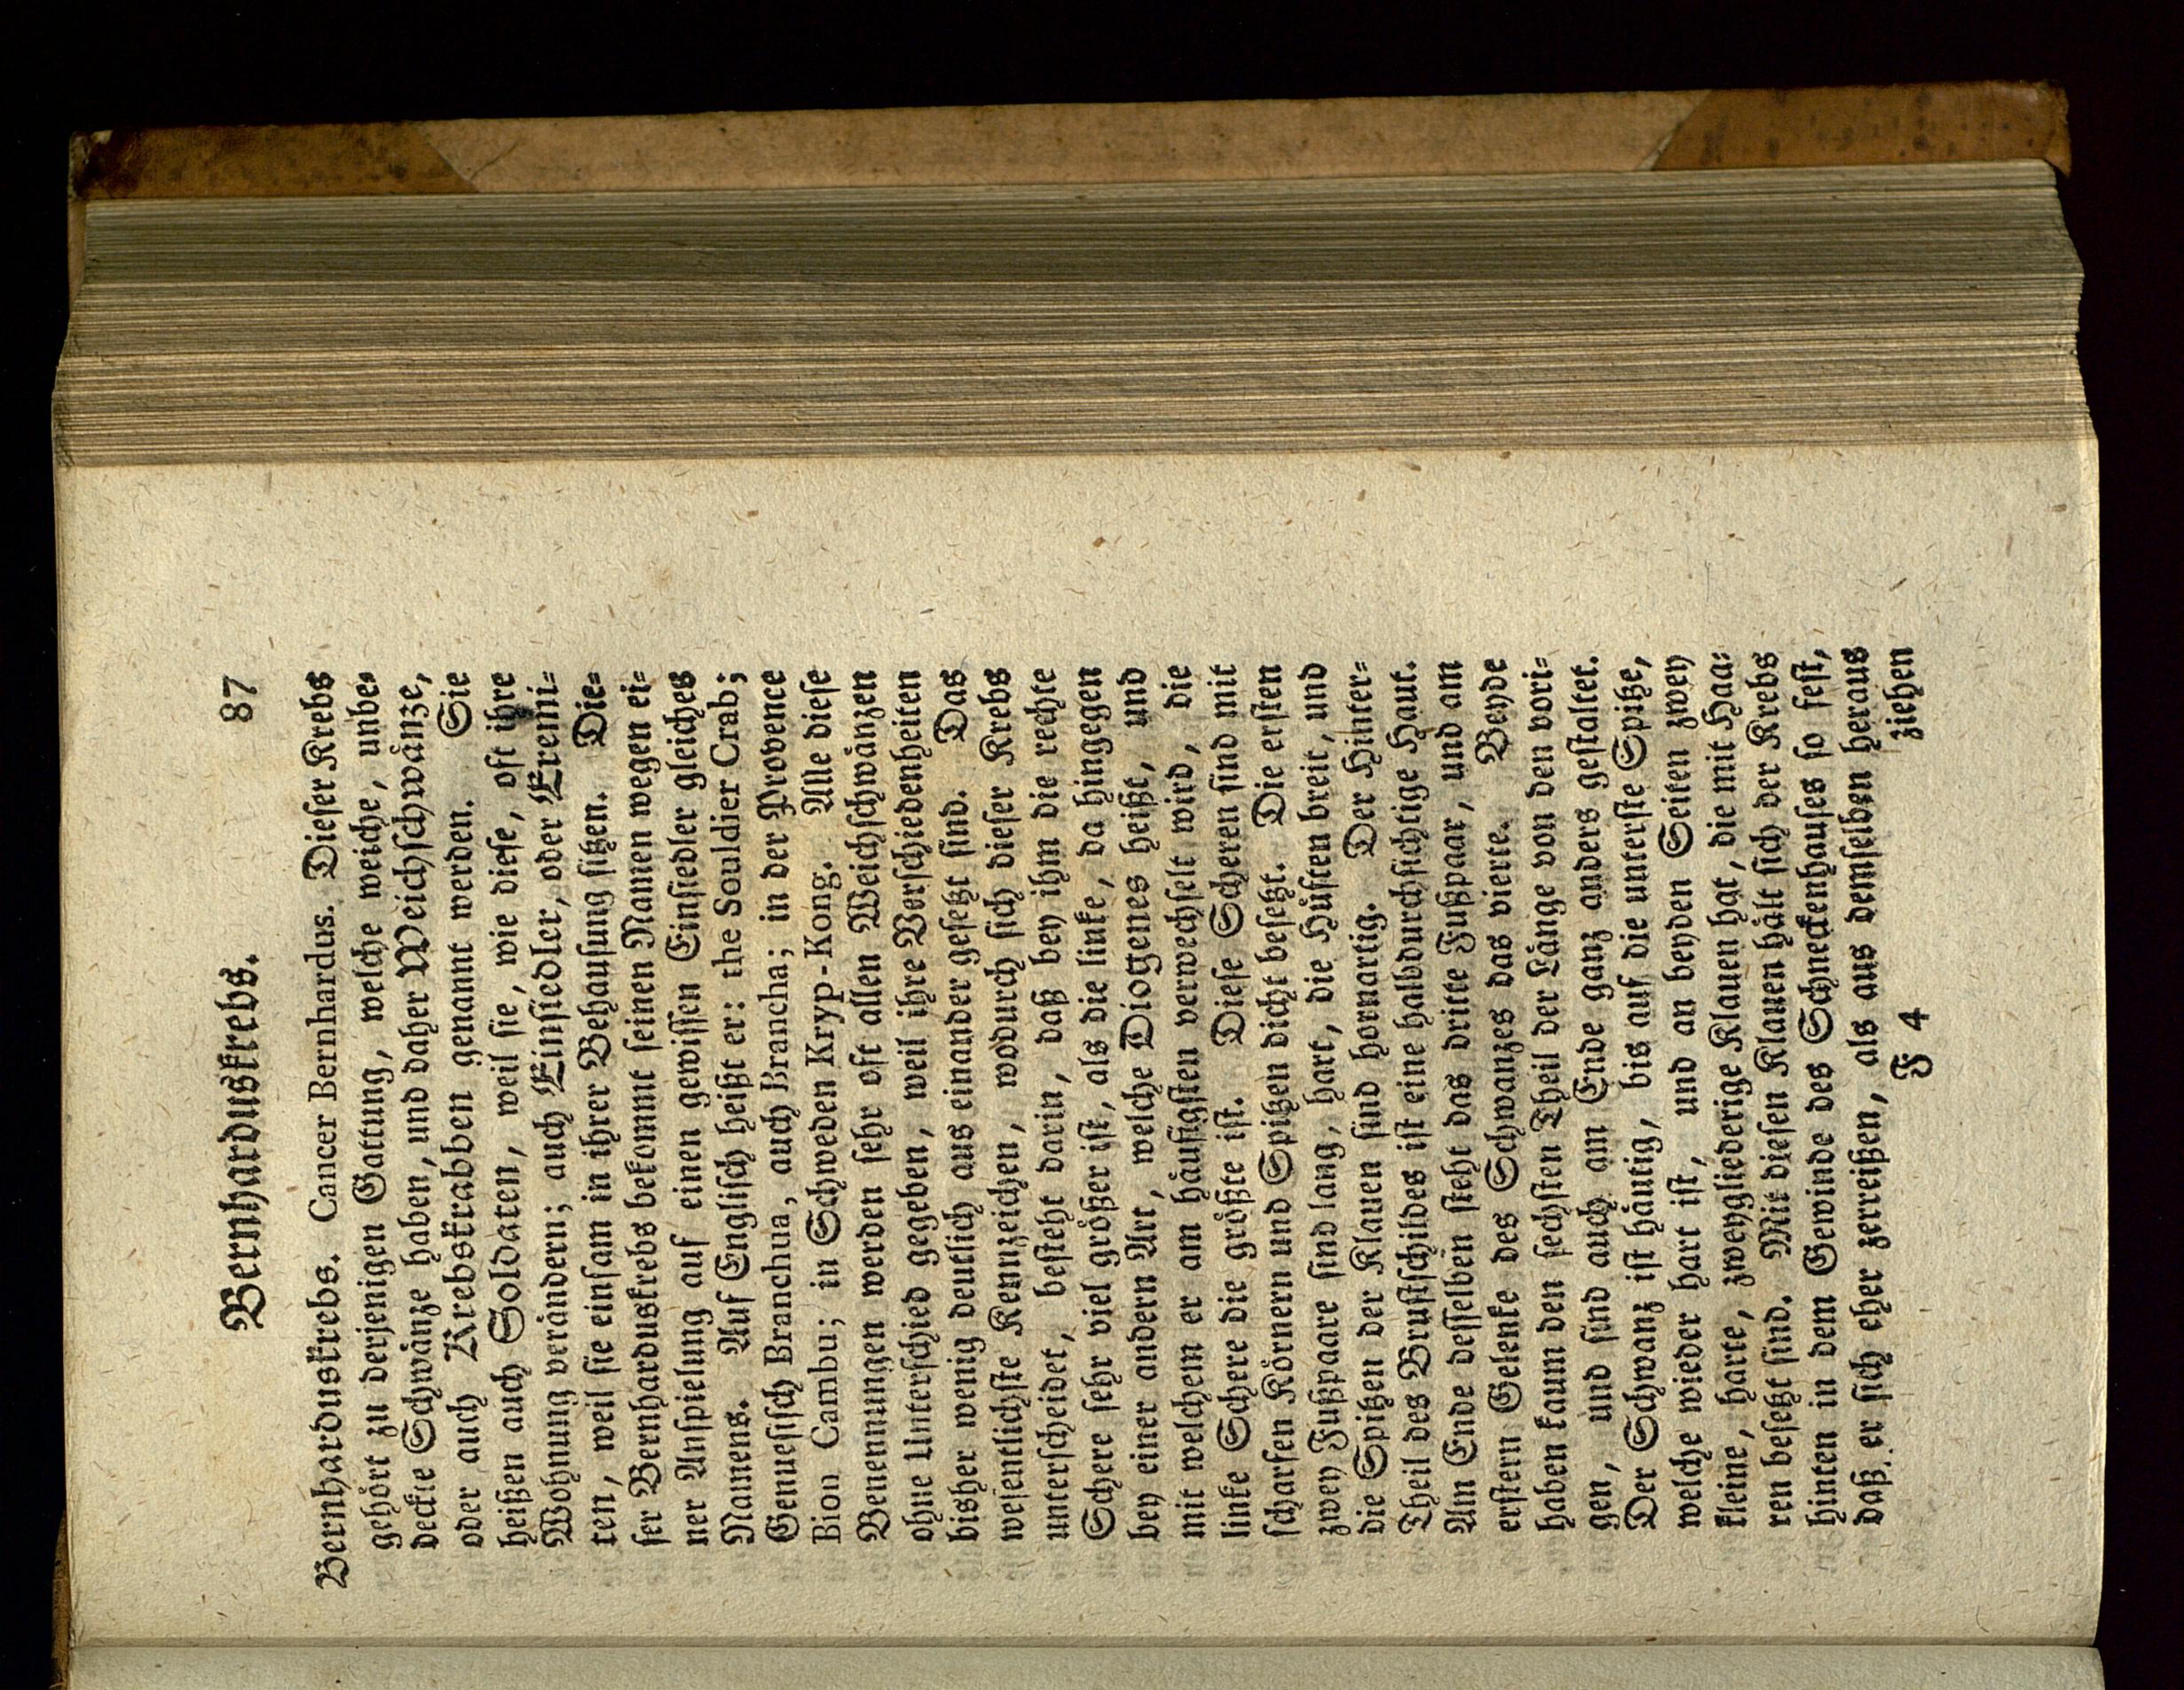 Bernharduskrebs. 87
Bernharduskrebs. Cancer Bernhardus. Dieser Krebs
gehört zu derjenigen Gattung, welche weiche, unbe-
deckte Schwänze haben, und daher Weichschwänze,
oder auch Krebskrabben genannt werden. Sie
heißen auch Soldaten, weil sie, wie diese, oft ihre
Wohnung verändern; auch Einsiedler, oder Eremi-
ten, weil sie einsam in ihrer Behausung sitzen. Die-
ser Bernharduskrebs bekommt seinen Namen wegen ei-
ner Anspielung auf einen gewissen Einsiedler gleiches
Namens. Auf Englisch heißt er: the Souldier Crab;
Genuesisch Branchua, auch Brancha; in der Provence
Bion Cambu; in Schweden Kryp-Kong. Alle diese
Benennungen werden sehr oft allen Weichschwänzen
ohne Unterschied gegeben, weil ihre Verschiedenheiten
bisher wenig deutlich aus einander gesetzt sind. Das
wesentlichste Kennzeichen, wodurch sich dieser Krebs
unterscheidet, besteht darin, daß bey ihm die rechte
Schere sehr viel größer ist, als die linke, da hingegen
bey einer andern Art, welche Diogenes heißt, und
mit welchem er am häufigsten verwechselt wird, die
linke Schere die größte ist. Diese Scheren sind mit
scharfen Körnern und Spitzen dicht besetzt. Die ersten
zwey Fußpaare sind lang, hart, die Hüften breit, und
die Spitzen der Klauen sind hornartig. Der Hinter-
Theil des Brustschildes ist eine halbdurchsichtige Haut.
Am Ende desselben steht das dritte Fußpaar, und am
erstern Gelenke des Schwanzes das vierte. Beyde
haben kaum den sechsten Theil der Länge von den vori-
gen, und sind auch am Ende ganz anders gestaltet.
Der Schwanz ist häutig, bis auf die unterste Spitze,
welche wieder hart ist, und an beyden Seiten zwey
kleine, harte, zweygliederige Klauen hat, die mit Haa-
ren besetzt sind. Mit diesen Klauen hält sich der Krebs
hinten in dem Gewinde des Schneckenhauses so fest,
daß er sich eher zerreißen, als aus demselben heraus
F 4 ziehen